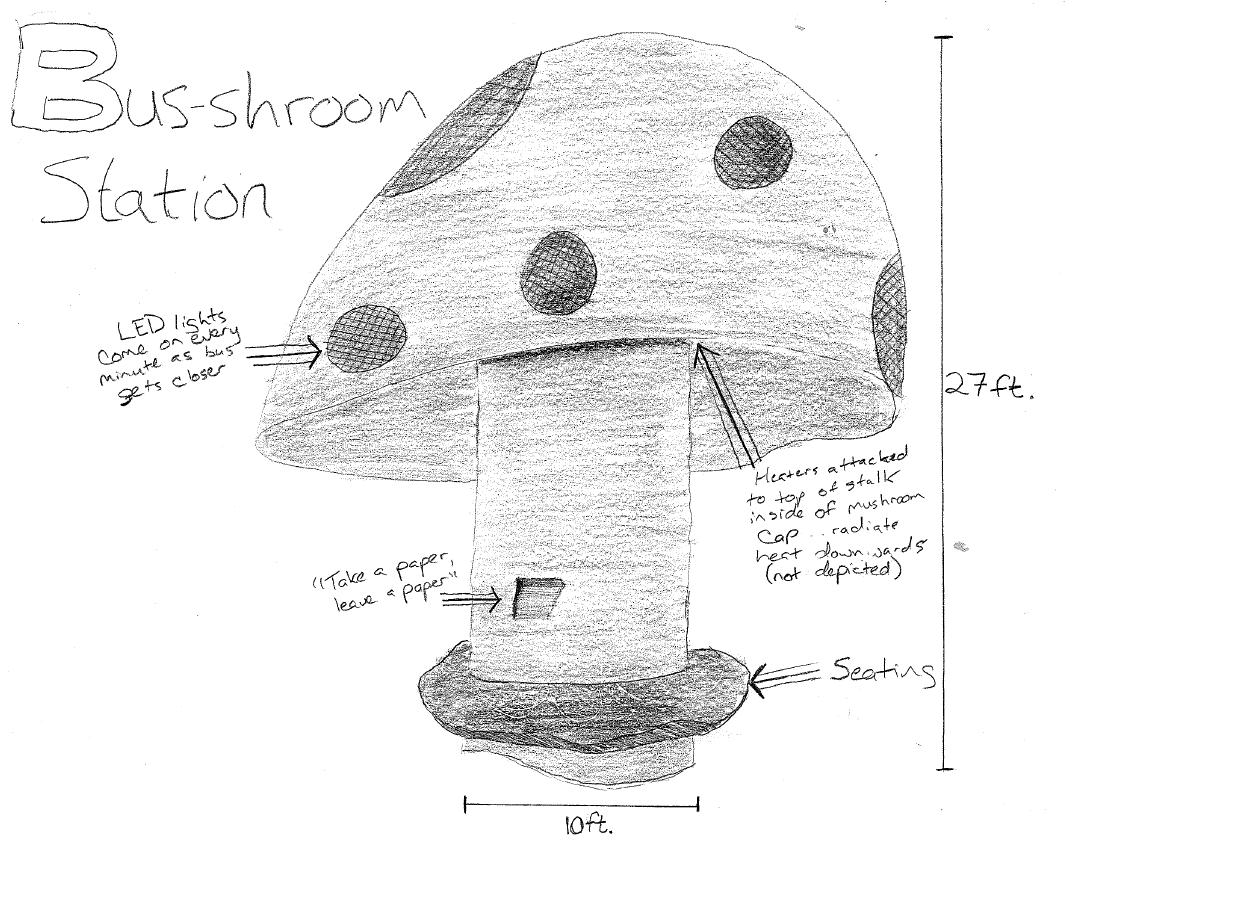 Bus-shroom
Station
LED lights
come on every
minute as bus
gets closer
27ft.
Heaters attacked
to top of stalk
inside of mushroom
cap... radiate
heat downwards
(not depicted)
"Take a paper,
leave a paper"
Seating
10ft.